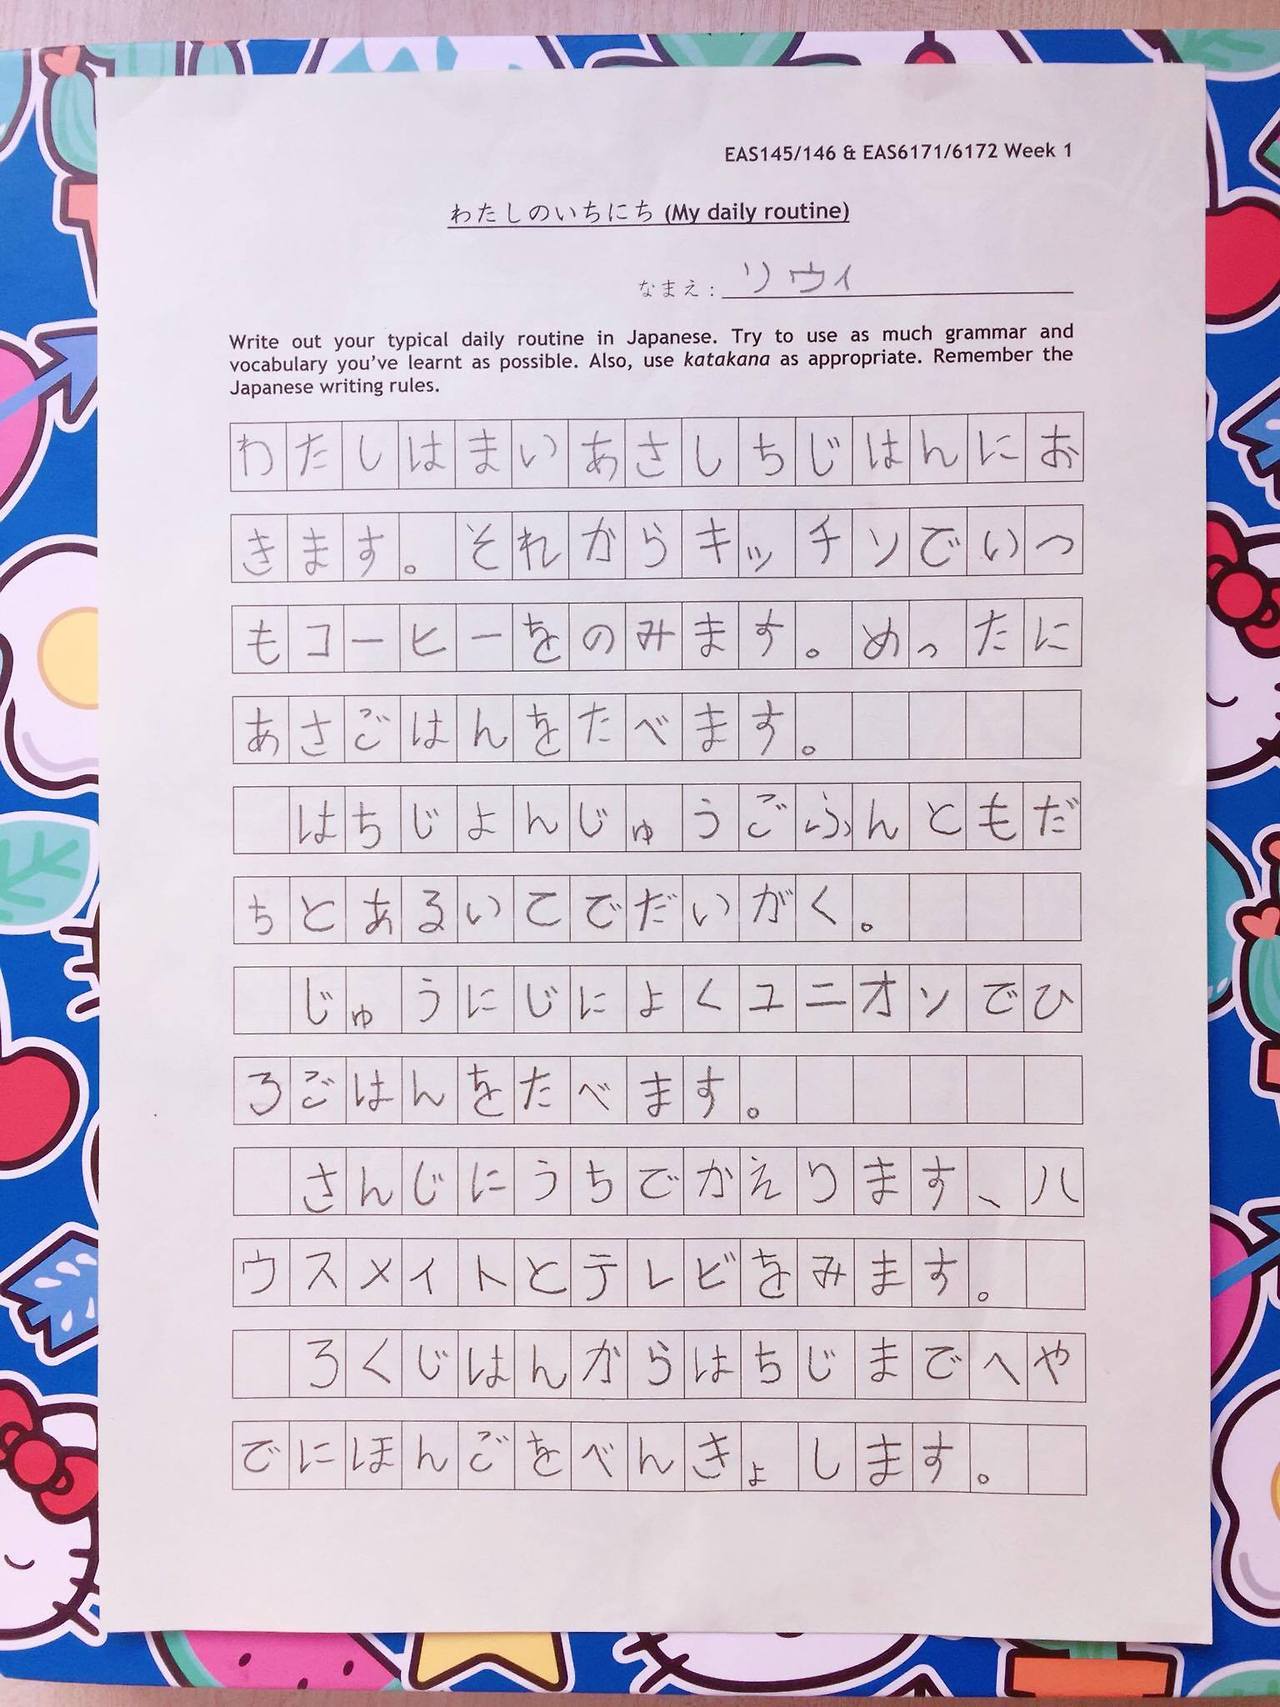 EAS145/146 & EAS6171/6172 Week 1
わたしのいちにち (My daily routine)
なまえ: リウィ
Write out your typical daily routine in Japanese. Try to use as much grammar and
vocabulary you've learnt as possible. Also, use katakana as appropriate. Remember the
Japanese writing rules.
わたしはまいあさしちじはんにお
きます。それからキッチンでいつ
もコーヒーをのみます。めったに
あさごはんをたべます。
はちじよんじゅうごふんともだ
ちとあるいてでだいがく。
じゅうにじによくユニオンでひ
ろごはんをたべます。
さんじにうちでかえります、ハ
ウスメイトとテレビをみます。
ろくじはんからはちじまでへや
でにほんごをべんきょします。